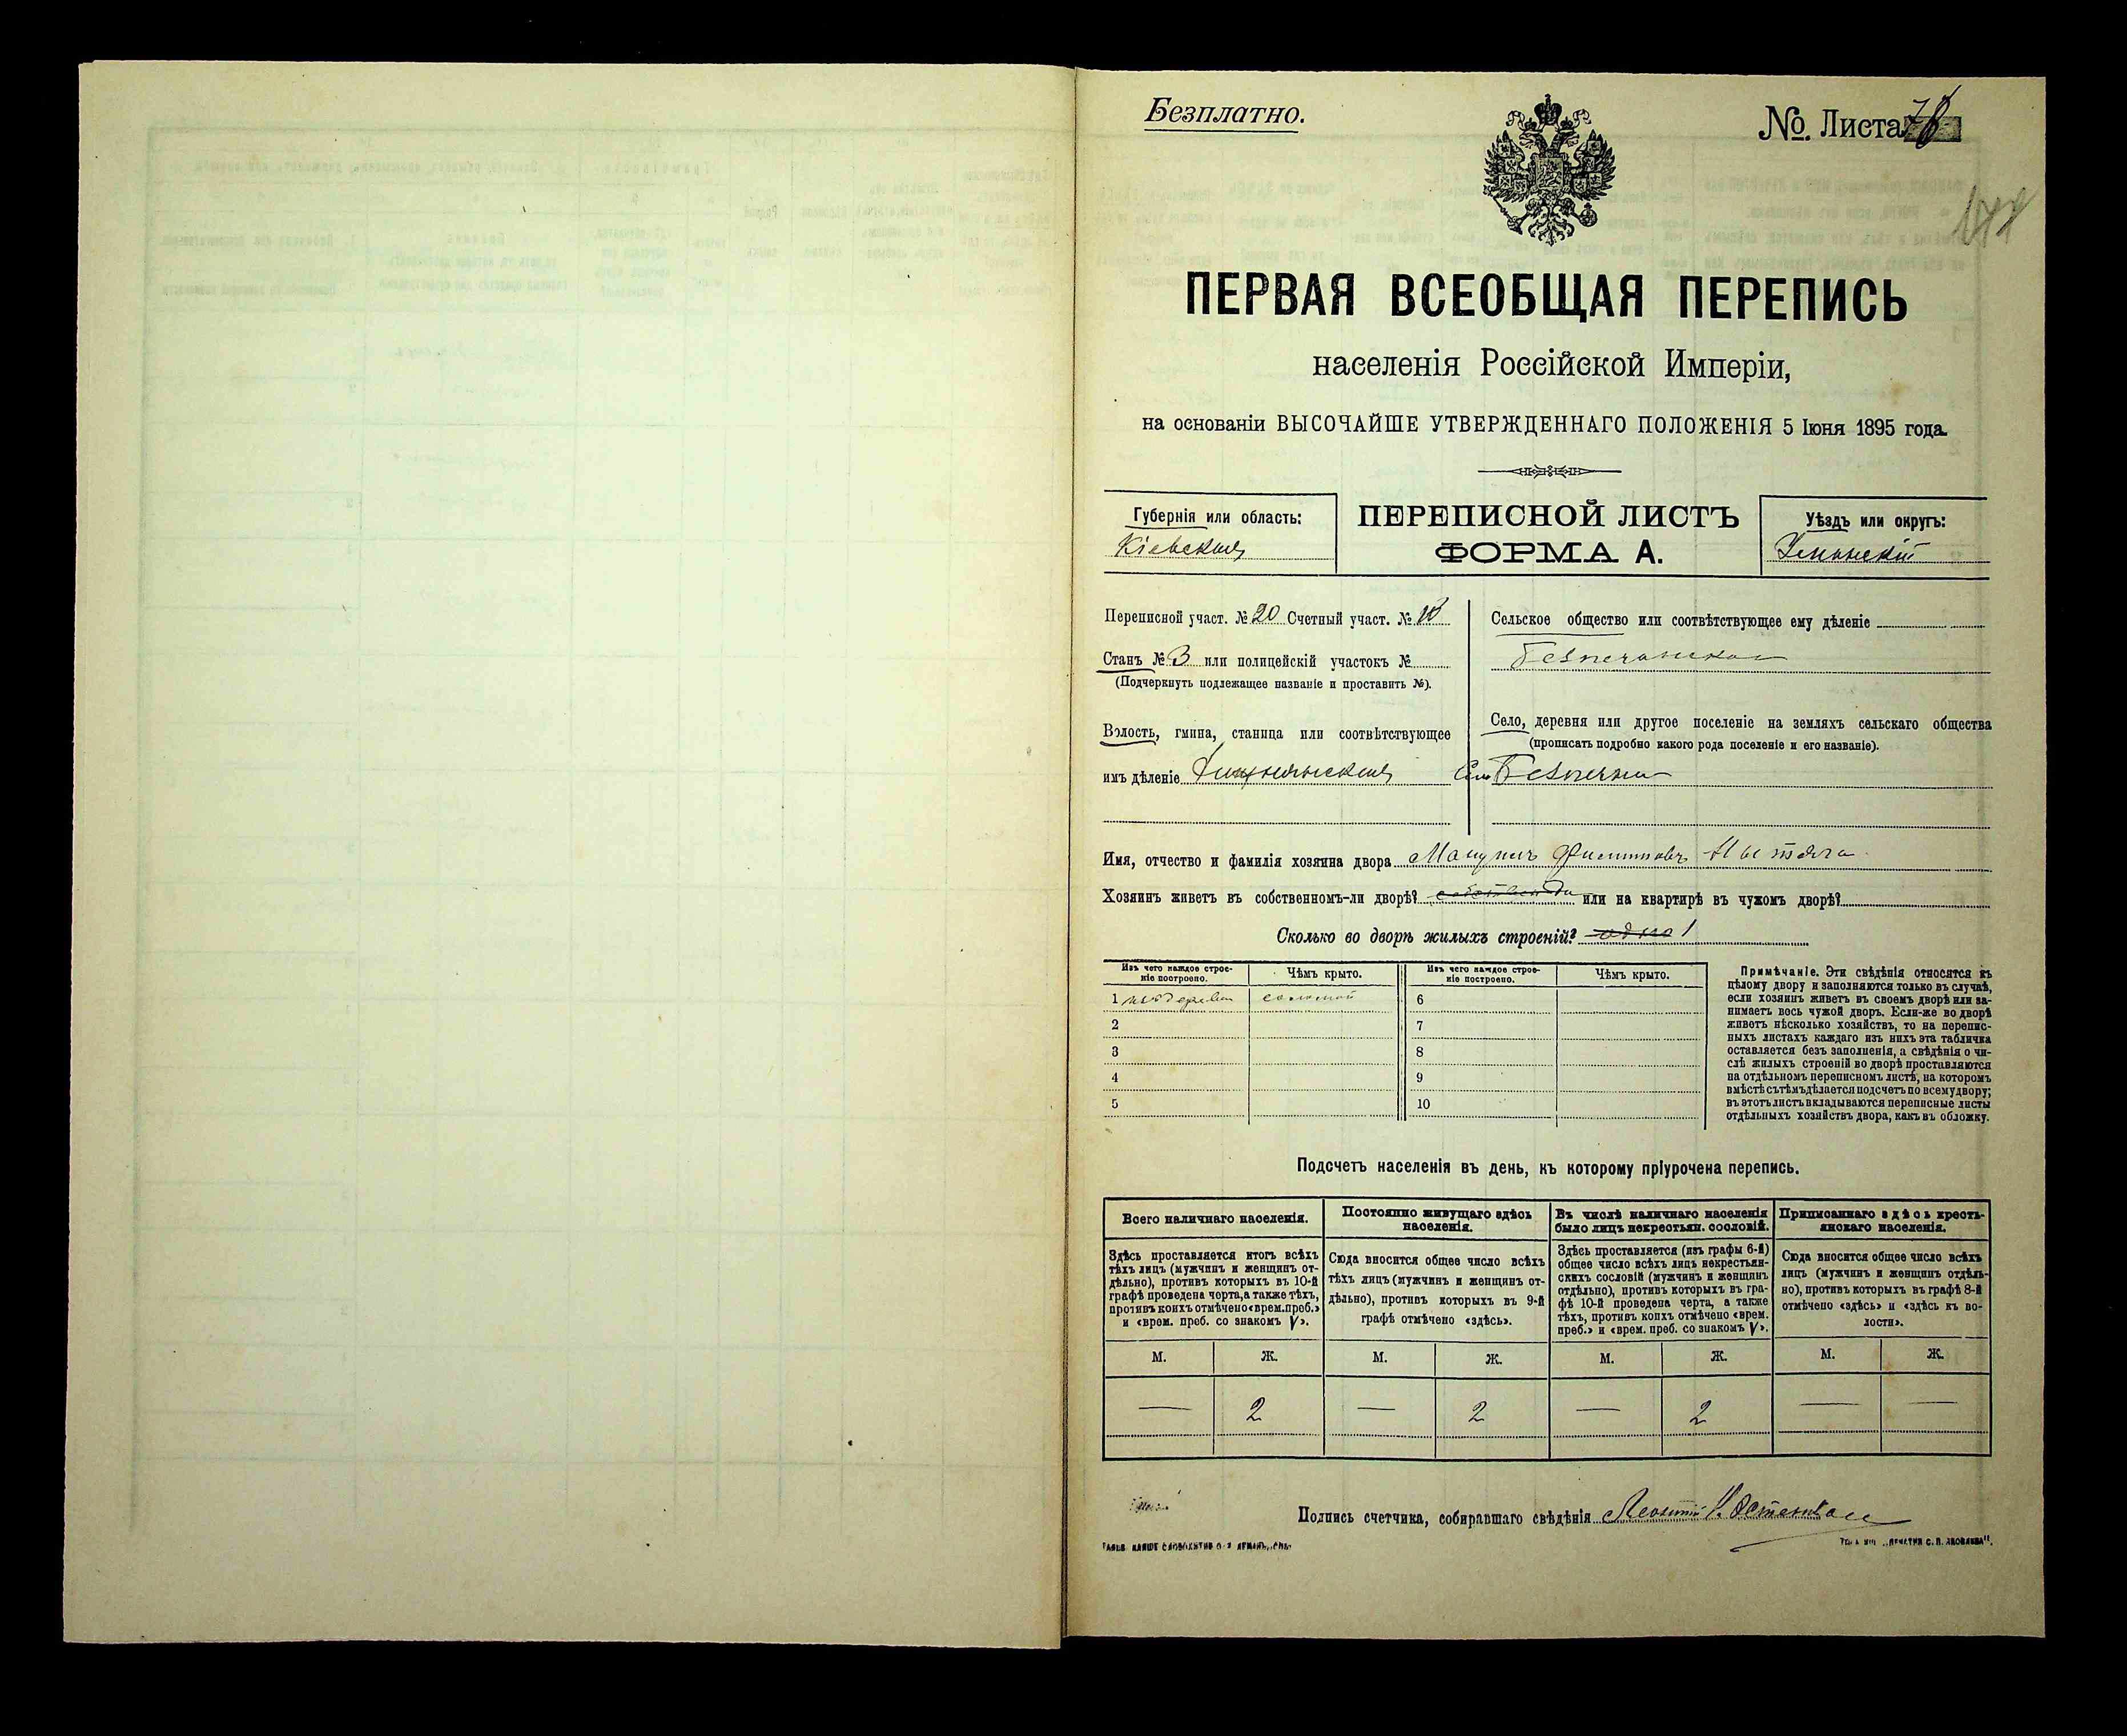 Безплатно.
№. Листа 78
ПЕРВАЯ ВСЕОБЩАЯ ПЕРЕПИСЬ
населенія Россійской Имперіи,
на основаніи ВЫСОЧАЙШЕ УТВЕРЖДЕННАГО ПОЛОЖЕНІЯ 5 Іюня 1895 года
Губернія или область:
Кіевская
ПЕРЕПИСНОЙ ЛИСТЪ
ФОРМА А.
Уѣздъ или округъ:
Уманскій
Переписной участ. № 20 Счетный участ. №
Станъ № 3 или полицейскій участокъ №
(Подчеркнуть подлежащее названіе и проставить №).
Волость, гмина, станица или соотвѣтствующее
имъ дѣленіе
Сельское общество или соотвѣтствующее ему дѣленіе
Безпечанское
Село, деревня или другое поселеніе на земляхъ сельскаго общества
(прописать подробно какого рода поселеніе и его названіе).
Село Безпечна
Имя, отчество и фамилія хозяина двора Филипповъ
Хозяинъ живетъ въ собственномъ-ли дворѣ? или на квартирѣ въ чужомъ дворѣ?
Сколько во дворѣ жилыхъ строеній? одно 1
Изъ чего каждое строе-
ніе построено.
Чѣмъ крыто.
Изъ чего каждое строе-
ніе построено.
Чѣмъ крыто.
1 изъ дерева соломой 6
2 7
3 8
4 9
5 10
Примѣчаніе. Эти свѣдѣнія относятся къ
цѣлому двору и заполняются только въ случаѣ,
если хозяинъ живетъ въ своемъ дворѣ или за-
нимаетъ весь чужой дворъ. Если-же во дворѣ
живетъ нѣсколько хозяйствъ, то на перепис-
ныхъ листахъ каждаго изъ нихъ эта табличка
оставляется безъ заполненія, а свѣдѣнія о чи-
слѣ жилыхъ строеній во дворѣ проставляются
на отдѣльномъ переписномъ листѣ, на которомъ
вмѣстѣ съ тѣмъ дѣлается подсчетъ по всему двору;
въ этотъ листъ вкладываются переписные листы
отдѣльныхъ хозяйствъ двора, какъ въ обложку.
Подсчетъ населенія въ день, къ которому пріурочена перепись.
Всего наличнаго населенія.
Здѣсь проставляется итогъ всѣхъ
тѣхъ лицъ (мужчинъ и женщинъ от-
дѣльно), противъ которыхъ въ 10-й
графѣ проведена черта, а также тѣхъ,
противъ коихъ отмѣчено «врем. преб.»
и «врем. преб. со знакомъ V».
Постоянно живущаго здѣсь
населенія.
Сюда вносится общее число всѣхъ
тѣхъ лицъ (мужчинъ и женщинъ от-
дѣльно), противъ которыхъ въ 9-й
графѣ отмѣчено «здѣсь».
Въ числѣ наличнаго населенія
было лицъ некрестьян. сословій.
Здѣсь проставляется (изъ графы 6-й)
общее число всѣхъ лицъ некрестьян-
скихъ сословій (мужчинъ и женщинъ
отдѣльно), противъ которыхъ въ гра-
фѣ 10-й проведена черта, а также
тѣхъ, противъ коихъ отмѣчено «врем.
преб.» и «врем. преб. со знакомъ V».
Приписаннаго здѣсь кресть-
янскаго населенія.
Сюда вносится общее число всѣхъ
лицъ (мужчинъ и женщинъ отдѣль-
но), противъ которыхъ въ графѣ 8-й
отмѣчено «здѣсь» и «здѣсь къ во-
лости».
М. Ж. М. Ж. М. Ж. М. Ж.
— 2 — 2 — 2 — —
Подпись счетчика, собиравшаго свѣдѣнія